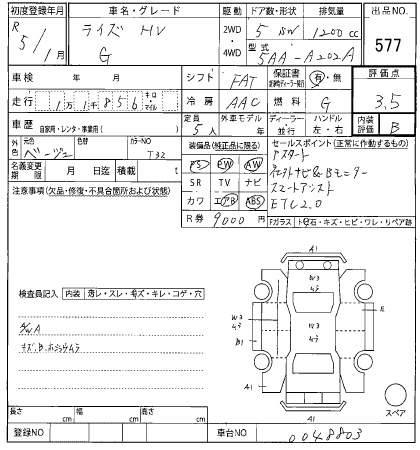 初度登録年月
R 5/1月
車名・グレード
ライズ HV
G
駆動
2WD
4WD
ドア数・形状
5 SW
排気量
1200 cc
型式
5AA-A202A
出品NO.
577
車検 年 月
シフト FAT
保証書
有・無
評価点
3.5
走行 1万1千856 キロ・マイル
冷房 AAC
燃料 G
車歴 自家用・レンタ・事業用( )
定員 5人
外車モデル 年
ディーラー・並行
ハンドル 左・右
内装評価 B
外色
元色 ベージュ
色替
カラーNO T32
名義変更期限 月 日迄
積載 t
装備品(純正品に限る)
PS PW AW
SR TV ナビ
カワ エアB ABS
R券 9000円
セールスポイント(正常に作動するもの)
アスタート
スマートアシスト
ETC2.0
注意事項(欠品・修復・不具合箇所および状態)
Fガラス
トビ石・キズ・ヒビ・ワレ・リペア跡
検査員記入
内装
薄レ・スレ・キズ・キレ・コゲ・穴
A/W A
A1
W3
ムラ
W3
ムラ
B1
A1
E
W3
ムラ
A1
A1
スペア
長さ cm
幅 cm
高さ cm
登録NO
車台NO 0048803